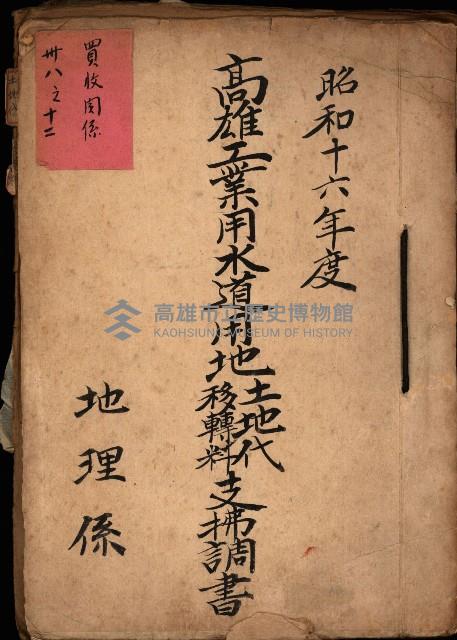 昭和十六年度
高雄工業用水道用地土地代移轉料支拂調書
地理係
買收関係
卅八之十二
高雄市立歷史博物館
KAOHSIUNG MUSEUM OF HISTORY